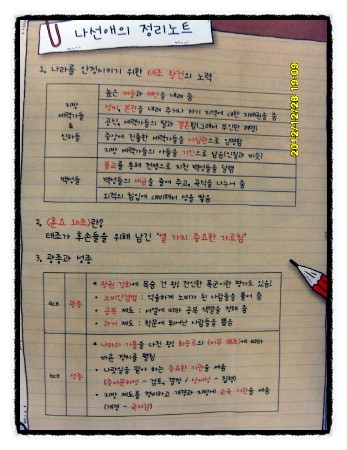 나선애의 정리노트
2012/12/28 19:09
1. 나라를 안정시키기 위한 태조 왕건의 노력
지방
호족들
&
신하들
높은 벼슬과 재산을 내려 줌
성씨, 본관을 내려 주거나 자기 지역에 대한 지배권을 줌
공신, 세력가들의 딸과 결혼함(그래서 부인만 29명)
중앙에 진출한 세력가들을 사심관으로 임명함
지방 세력가들의 아들을 기인으로 삼음(인질과 비슷)
백성들
불교를 통해 전쟁으로 지친 백성들을 달램
백성들의 세금을 줄여 주고, 곡식을 나누어 줌
외적의 침입에 대비해서 성을 쌓음
2. <훈요 10조>란?
태조가 후손들을 위해 남긴 '열 가지 중요한 가르침'
3. 광종과 성종
4대
광종
* 왕권 강화에 목숨 건 왕! 잔인한 폭군이란 평가도 있음!
• 노비안검법 : 억울하게 노비가 된 사람들을 풀어 줌
• 공복 제도 : 서열에 따라 공복 색깔을 정해 줌
• 과거 제도 : 학문에 뛰어난 사람들을 뽑음
6대
성종
* 나라의 기틀을 다진 왕! 최승로의 <시무 28조>에 따라
바른 정치를 펼침
• 나랏일을 맡아 하는 중요한 기관을 세움
(중서문하성 - 검토, 결정 / 상서성 - 집행)
• 지방 제도를 정비하고 개경과 지방에 교육 기관을 세움
(개경 - 국자감)